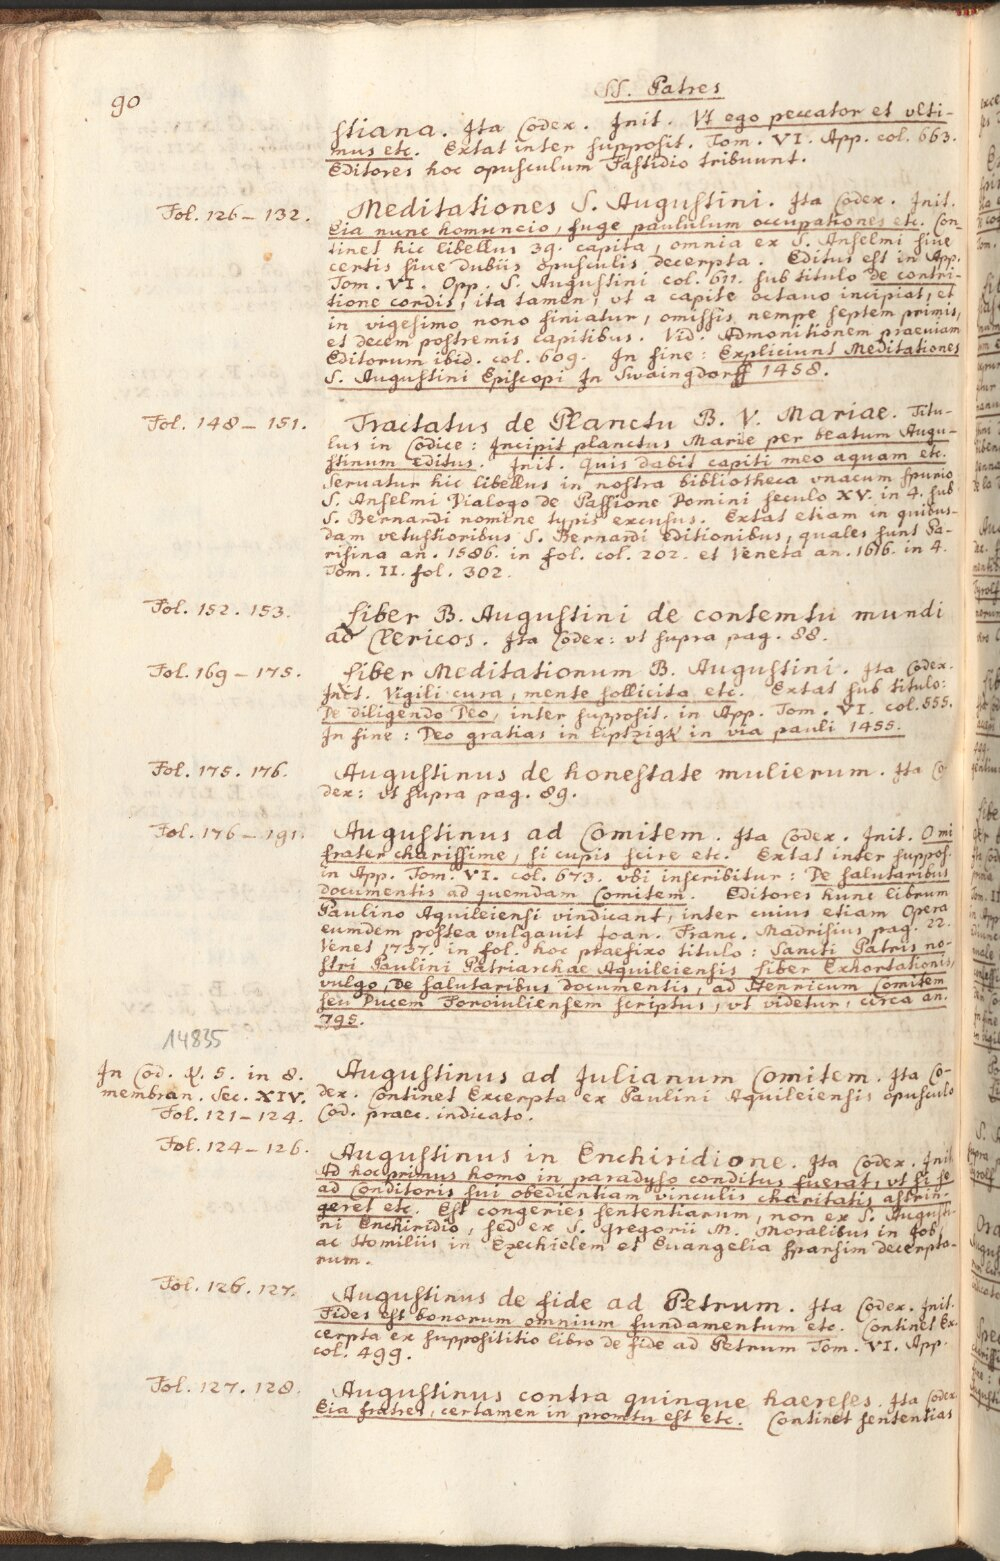 90
SS. Patres
stiana. Ita Codex. Init. Vt ego peccator et vlti-
mus etc. Extat inter supposit. Tom. VI. App. col. 663.
Editores hoc opusculum Fastidio tribuunt.
Fol. 126-132. Meditationes S. Augustini. Ita Codex. Init.
Eia nunc homuncio, fuge paululum occupationes etc. Con-
tinet hic libellus 39. capita, omnia ex S. Anselmi siue
certis siue dubiis opusculis decerpta. Editus est in App.
Tom. VI. Opp. S. Augustini col. 611. sub titulo De contri-
tione cordis, ita tamen, vt a capite octauo incipiat, et
in vigesimo nono finiatur, omissis nempe septem primis,
et decem postremis capitibus. Vid. Admonitionem praeuiam
Editorum ibid. col. 609. In fine: Expliciunt Meditationes
S. Augustini Episcopi In Swaingdorff 1458.
Fol. 148-151. Tractatus de Planctu B. V. Mariae. Titu-
lus in Codice: Incipit planctus Marie per beatum Augu-
stinum editus. Init. Quis dabit capiti meo aquam etc.
Seruatur hic libellus in nostra bibliotheca vnacum spurio
S. Anselmi Dialogo de Passione Domini seculo XV. in 4. sub
S. Bernardi nomine typis excusus. Extat etiam in quibus-
dam vetustioribus S. Bernardi editionibus, quales sunt Pa-
risina an. 1586. in fol. col. 202. et Veneta an. 1616. in 4.
Tom. II. fol. 302.
Fol. 152. 153. Liber B. Augustini de contemtu mundi
ad Clericos. Ita Codex: vt supra pag. 88.
Fol. 169-175. Liber Meditationum B. Augustini. Ita Codex.
Init. Vigili cura, mente sollicita etc. Extat sub titulo:
De diligendo Deo, inter supposit. in App. Tom. VI. col. 555.
In fine: Deo gratias in Liptzigk in via pauli 1455.
Fol. 175. 176. Augustinus de honestate mulierum. Ita Co
dex: vt supra pag. 89.
Fol. 176-191. Augustinus ad Comitem. Ita Codex. Init. O mi
frater charissime, si cupis scire etc. Extat inter suppos.
in App. Tom. VI. col. 673. vbi inscribitur: De salutaribus
documentis ad quemdam Comitem. Editores hunc librum
Paulino Aquileiensi vindicant, inter cuius etiam Opera
eumdem postea vulgauit Joan. Franc. Madrisius pag. 22.
Venet 1737. in fol. hoc praefixo titulo: Sancti Patris no-
stri Paulini Patriarchae Aquileiensis Liber Exhortationis,
vulgo, De salutaribus documentis, ad Henricum Comitem
seu Ducem Foroiuliensem scriptus, vt videtur, circa an.
795.
14835
In Cod. q. 5. in 8.
membran. Sec. XIV.
Fol. 121-124.
Augustinus ad Julianum Comitem. Ita Co-
dex. Continet Excerpta ex Paulini Aquileiensis opusculo
Cod. praec. indicato.
Fol. 124-126. Augustinus in Enchiridione. Ita Codex. Init.
Ad hoc primus homo in paradyso conditus fuerat, vt si se
ad Conditoris sui obedientiam vinculis charitatis astrin-
geret etc. Est congeries sententiarum, non ex S. Augusti-
ni Enchiridio, sed ex S. Gregorii M. Moralibus in Job,
ac Homiliis in Ezechielem et Euangelia sparsim decerpta-
rum.
Fol. 126. 127. Augustinus de fide ad Petrum. Ita Codex. Init.
Fides est bonorum omnium fundamentum etc. Continet Ex-
cerpta ex supposititio libro de fide ad Petrum Tom. VI. App.
col. 499.
Fol. 127. 128. Augustinus contra quinque haereses. Ita Codex
Eia fratres, certamen in promtu est etc. Continet sententias